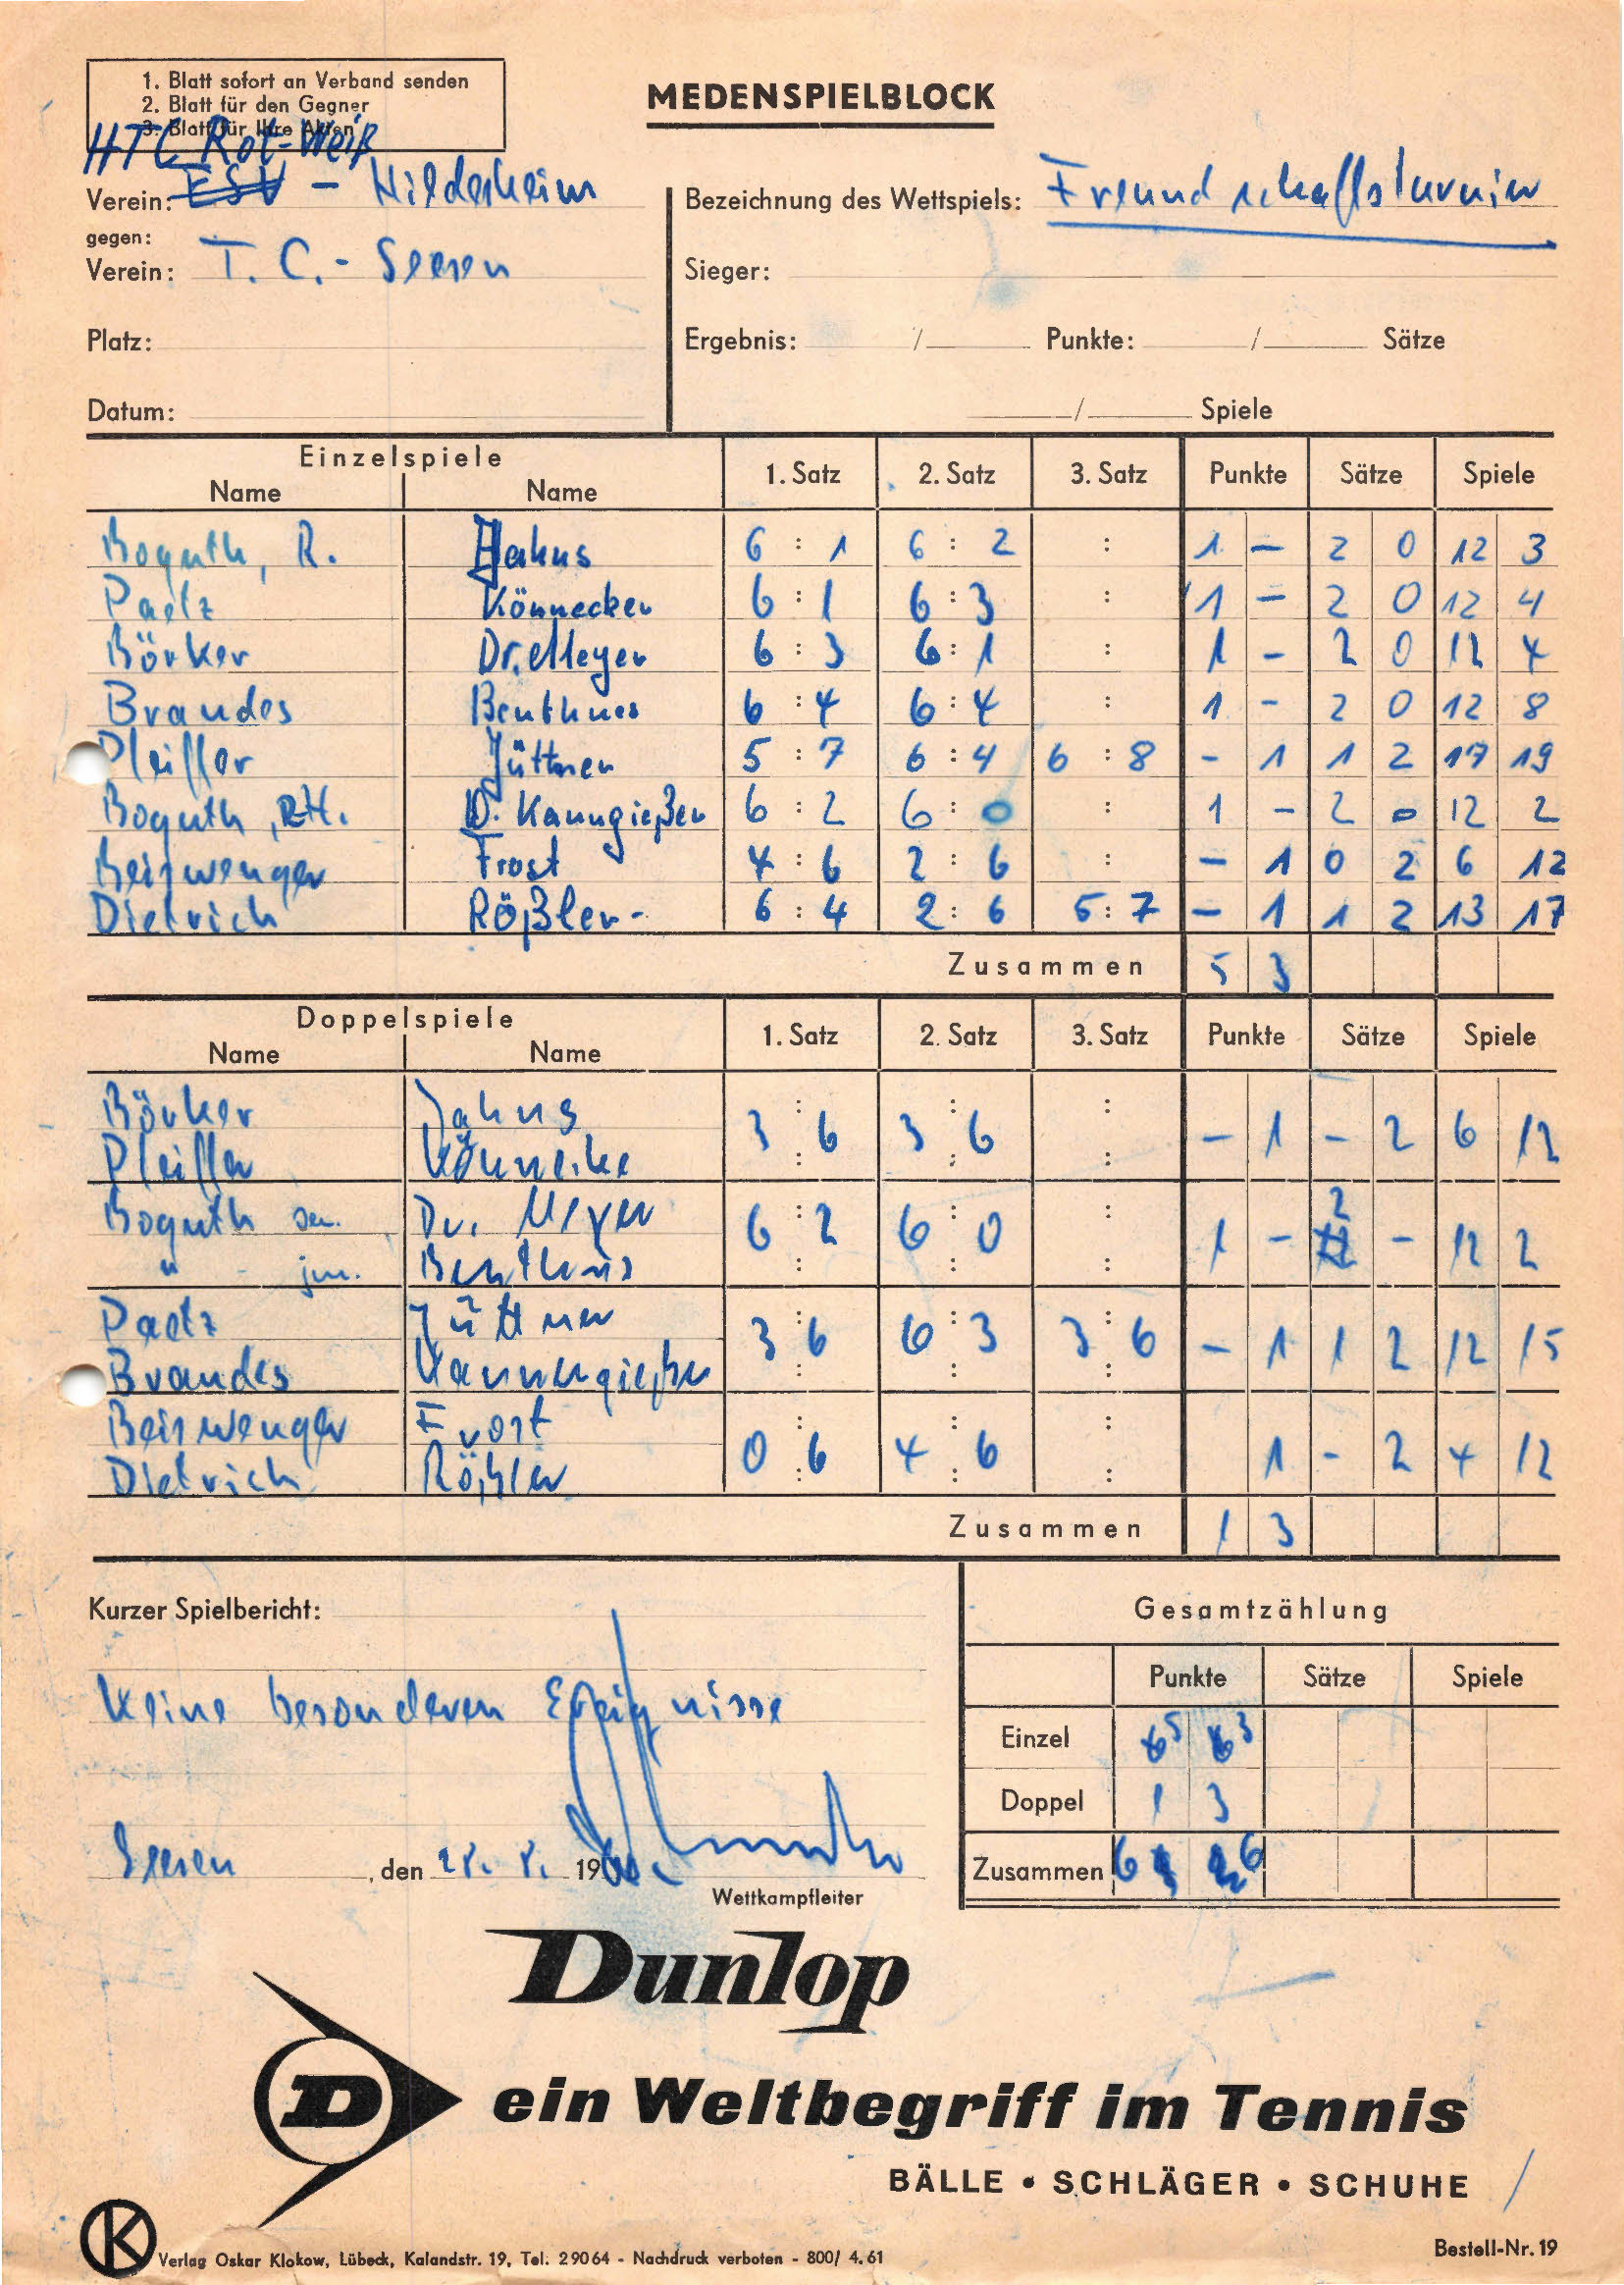 1. Blatt sofort an Verband senden
2. Blatt für den Gegner
3. Blatt für Ihre Akten
MEDENSPIELBLOCK
HTC Rot-Weiß
Verein: ESV - Hildesheim
gegen:
Verein: T. C. - Seesen
Platz:
Datum:
Bezeichnung des Wettspiels: Freundschaftsturnier
Sieger:
Ergebnis: / Punkte: / Sätze
/ Spiele
Einzelspiele
Name Name 1. Satz 2. Satz 3. Satz Punkte Sätze Spiele
Boguth, R. Jahns 6 : 1 6 : 2 : 1 - 2 0 12 3
Paetz Könnecker 6 : 1 6 : 3 : 1 - 2 0 12 4
Börker Dr. Meyer 6 : 3 6 : 1 : 1 - 2 0 12 4
Brandes Benthues 6 : 4 6 : 4 : 1 - 2 0 12 8
Pfeiffer Jüttner 5 : 7 6 : 4 6 : 8 - 1 1 2 17 19
Boguth, R.H. D. Kanngießer 6 : 2 6 : 0 : 1 - 2 0 12 2
Beiswenger Frost 4 : 6 2 : 6 : - 1 0 2 6 12
Dietrich Rößler - 6 : 4 2 : 6 5 : 7 - 1 1 2 13 17
Zusammen 5 3
Doppelspiele
Name Name 1. Satz 2. Satz 3. Satz Punkte Sätze Spiele
Börker Jahns
Pfeiffer Könneke 3 : 6 3 : 6 : - 1 - 2 6 12
Boguth sen. Dr. Meyer
" - jun. Benthues 6 : 2 6 : 0 : 1 - 2 - 12 2
Paetz Jüttner
Brandes Kannengießer 3 : 6 6 : 3 3 : 6 - 1 1 2 12 15
Beiswenger Frost
Dietrich Rößler 0 : 6 4 : 6 : 1 - 2 4 12
Zusammen 1 3
Kurzer Spielbericht:
Keine besonderen Ereignisse
Seesen, den 28. 8. 19
Wettkampfleiter
Gesamtzählung
Punkte Sätze Spiele
Einzel 5 3
Doppel 1 3
Zusammen 6 6
DUNLOP
D
ein Weltbegriff im Tennis
BÄLLE • SCHLÄGER • SCHUHE
K
Verlag Oskar Klokow, Lübeck, Kalandstr. 19, Tel. 29064 - Nachdruck verboten - 800/ 4.61
Bestell-Nr. 19